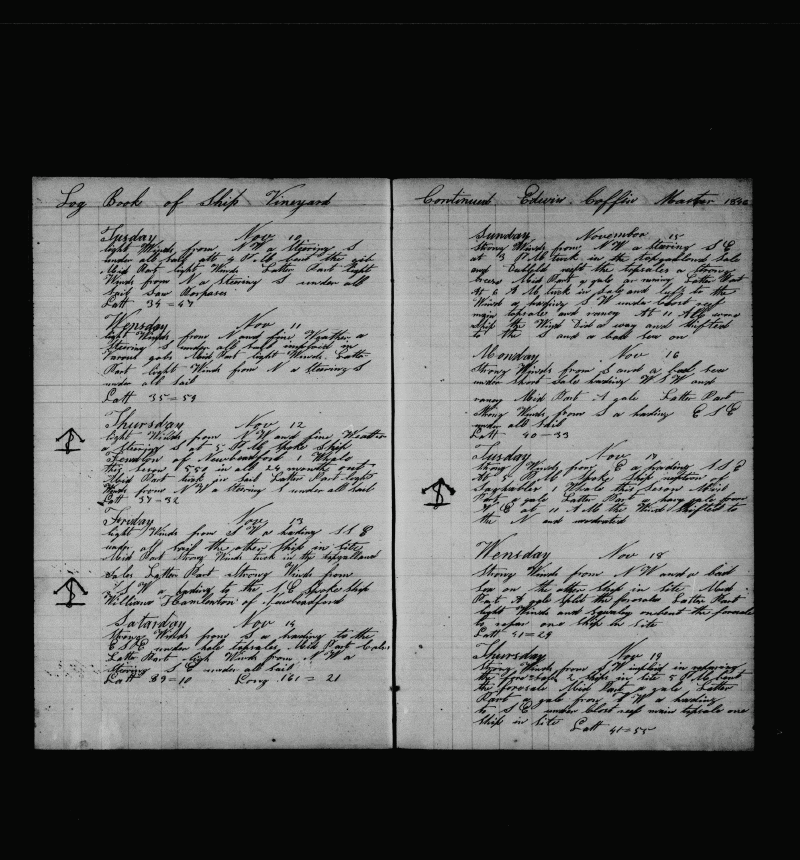 Log Book of Ship Vineyard
Tusday Nov 10
light Winds from N W a Stering S
under all Sail att 4 P M bent the gib
Mid Part light Winds Latter Part light
Winds from N a Stering S under all
Sail Saw Porpases
Latt 34=47
Wensday Nov 11
light Winds from N and fine Weather a
Stering S under all Sail imployed in
Varous gobs Mid Part light Winds Latter
Part light Winds from N a Stering S
under all Sail
Latt 35=53
Thursday Nov 12
light Winds from N W and fine Weather
Stering S at 5 P M Spoke Ship
of Newbedford 1 Whale
this Seson 550 in all 24 months out
Mid Part tuck in Sail Latter Part light
Winds from N W a Stering S under all Sail
Latt 37=32
Friday Nov 13
light Winds from S W a hading S S E
under all Sail the other Ship in Site
Mid Part Strong Winds tuck in the topgalland
Sales Latter Part Strong Winds from
S W a hading to the S E Spoke Ship
William Hamlenton of Newbedford
Saturday Nov 14
Strong Winds from S a hading to the
E S E under hole topsales Mid Part Calm
Latter Part light Winds from N W a
Stering S E under all Sail
Latt 39=10 Long 161=21
Continued Edwin Coffin Master 1846
Sunday November 15
Strong Winds from N W a Stering S E
at 3 P M tuck in the topgalland Sale
and reeft the topsales a Strong
breese Mid Part a gale a runing Latter Part
At 6 A M tuck in Sale and luft to the
Wind a hading S W under Clost reef
main topsale and rancy At 11 AM
Ship the Wind Died a way and Shifted
to the S and a bad Sea on
Monday Nov 16
Strong Winds from S and a bad Sea
under Short Sale hading W S W and
rancy Mid Part A gale Latter Part
Strong Winds from S a hading E S E
under all Sail
Latt 40=33
Tusday Nov 17
Strong Winds from E a hading S S E
At 5 P M Spoke Ship nepton of
1 Whale this Seson Mid
Part a gale Latter Part a harey gale from
N E at 11 A M the Wind Shifted to
the N and moderated
Wensday Nov 18
Strong Winds from N W and a bad
Sea on the other Ship in Site Mid
Part A gale Split the foresale Latter Part
light Winds and Squaley unbent the foresale
to repair one Ship in Site
Latt 41=29
Thursday Nov 19
Strong Winds from S W imploid in repairing
the foresale 2 Ships in Site 5 P M bent
the foresale Mid Part a gale Latter
Part a gale from S W a hading
to S E under Clost reef main topsale one
Ship in Site
Latt 41=55